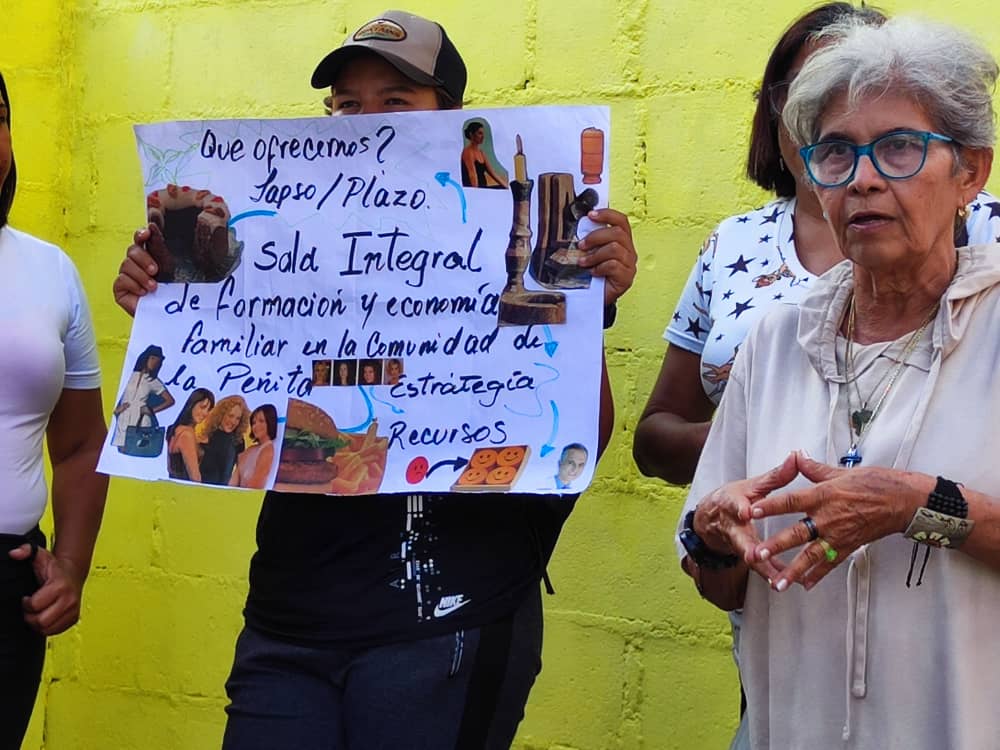 Que ofrecemos?
Lapso/Plazo.
Sala Integral
de formación y economía
familiar en la Comunidad de
la Peñita
Estrategia
Recursos
NIKE